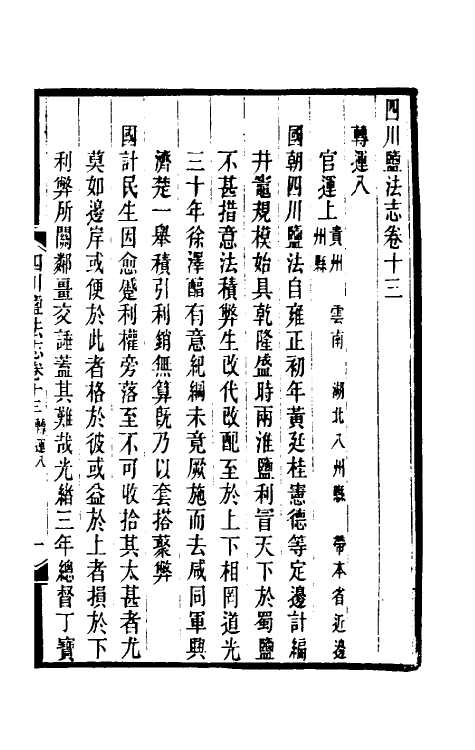 四川鹽法志卷十三
轉運八
官運上貴州 雲南 湖北八州縣 帶本省近邊
州縣
國朝四川鹽法自雍正初年黃廷桂憲德等定邊計編
井竈規模始具乾隆盛時兩淮鹽利冒天下於蜀鹽
不甚措意法積弊生改代改配至於上下相罔道光
三十年徐澤醕有意紀綱未竟厥施而去咸同軍興
濟楚一舉積引利銷無算旣乃以套搭蘩弊
國計民生因愈蹙利權旁落至不可收拾其太甚者尤
莫如邊岸或便於此者格於彼或益於上者損於下
利弊所關鄰畺交諈蓋其難哉光緒三年總督丁寶
四川鹽法志卷十三 轉運八 一